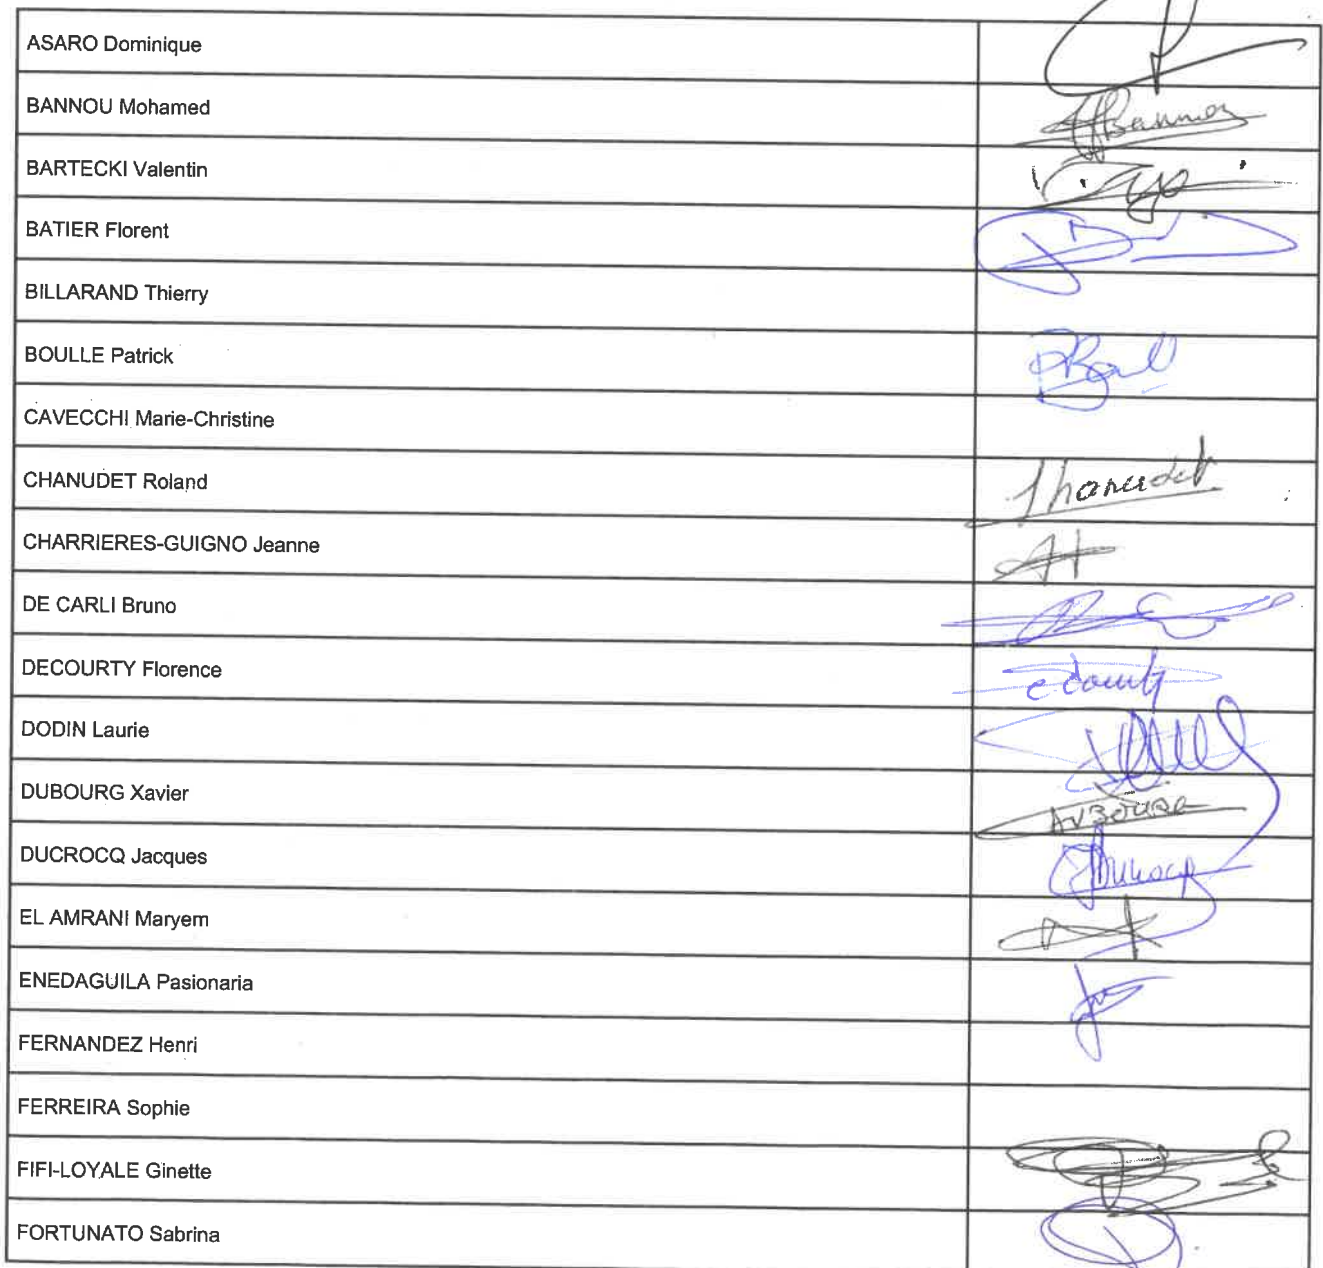 ASARO Dominique
BANNOU Mohamed
Bannou
BARTECKI Valentin
BATIER Florent
BILLARAND Thierry
BOULLE Patrick
CAVECCHI Marie-Christine
CHANUDET Roland
Chanudet
CHARRIERES-GUIGNO Jeanne
DE CARLI Bruno
DECOURTY Florence
DODIN Laurie
DUBOURG Xavier
DUCROCQ Jacques
Ducrocq
EL AMRANI Maryem
ENEDAGUILA Pasionaria
FERNANDEZ Henri
FERREIRA Sophie
FIFI-LOYALE Ginette
FORTUNATO Sabrina